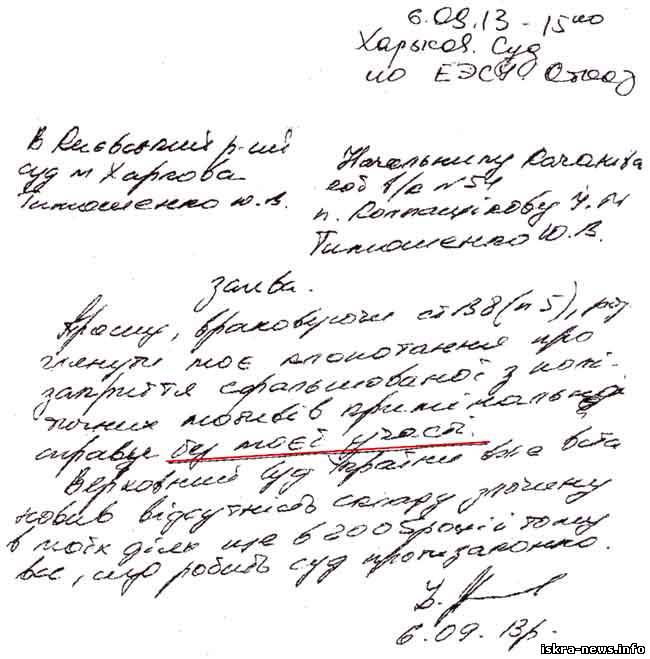 6.09.13 - 15 00
Харьков. Суд
по ЕЭСУ. Отказ
В Києвський р-ний
суд м Харкова
Тимошенко Ю.В.
Начальнику Качанівс
кої в/к №54
п. Колпащікову І.М
Тимошенко Ю.В.
Заява.
Прошу, враховуючи ст 138 (п 5), роз
глянути моє клопотання про
закриття сфальшованої з полі-
тичних мотивів кримінальної
справи без моєї участі.
Верховний Суд України вже вста
новив відсутність складу злочину
в моїх діях ще в 2005 році і тому
все, що робить суд протизаконно.
6.09. 13р.
iskra-news.info